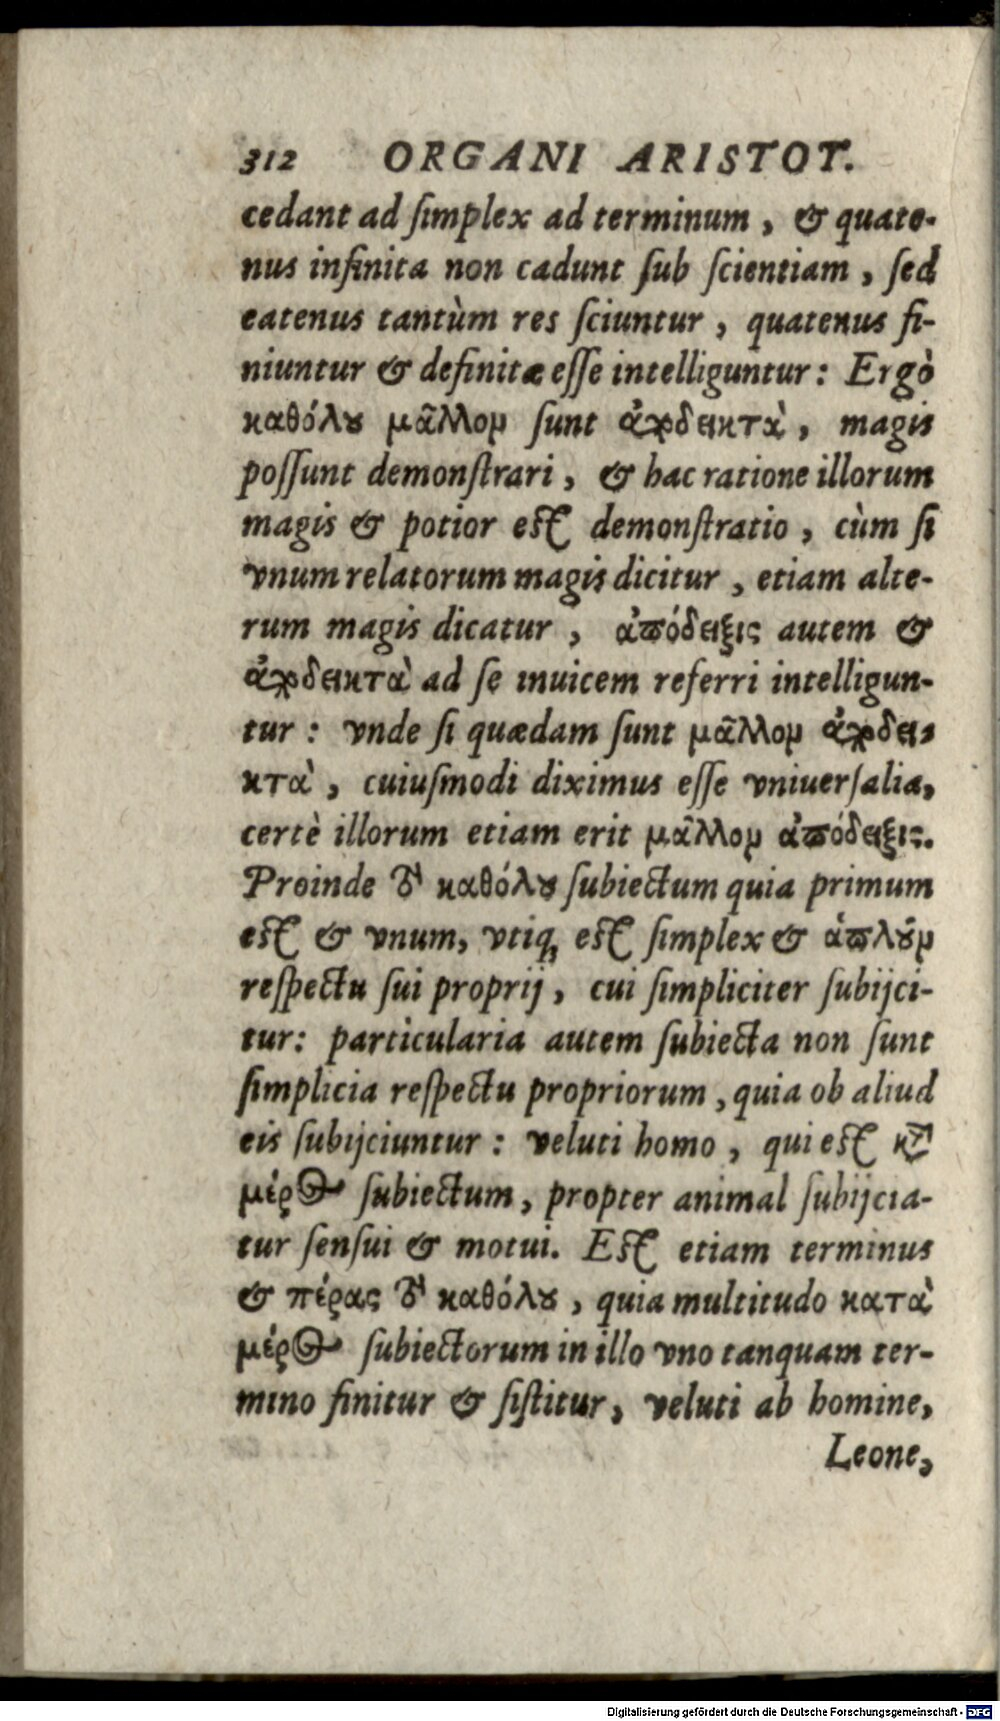 312 ORGANI ARISTOT.
cedant ad ſimplex ad terminum, & quate-
nus infinita non cadunt ſub ſcientiam, ſed
eatenus tantùm res ſciuntur, quatenus fi-
niuntur & definitæ eſſe intelliguntur: Ergò
καθόλȣ μᾶλλομ ſunt ἀποδεικτὰ, magis
poſſunt demonſtrari, & hac ratione illorum
magis & potior eſt demonſtratio, cùm ſi
vnum relatorum magis dicitur, etiam alte-
rum magis dicatur, ἀπόδειξις autem &
ἀποδεικτὰ ad ſe inuicem referri intelligun-
tur: vnde ſi quædam ſunt μᾶλλομ ἀποδει-
κτὰ, cuiuſmodi diximus eſſe vniuerſalia,
certè illorum etiam erit μᾶλλομ ἀπόδειξις.
Proinde τȣ͂ καθόλȣ ſubiectum quia primum
eſt & vnum, vtiq; eſt ſimplex & ἁπλȣ͂μ
reſpectu ſui proprij, cui ſimpliciter ſubijci-
tur: particularia autem ſubiecta non ſunt
ſimplicia reſpectu propriorum, quia ob aliud
eis ſubijciuntur: veluti homo, qui eſt κτ̀
μέρος ſubiectum, propter animal ſubijcia-
tur ſenſui & motui. Eſt etiam terminus
& πέρας τȣ͂ καθόλȣ, quia multitudo κατὰ
μέρος ſubiectorum in illo vno tanquam ter-
mino finitur & ſiſtitur, veluti ab homine,
Leone,
Digitalisierung gefördert durch die Deutsche Forschungsgemeinschaft - DFG